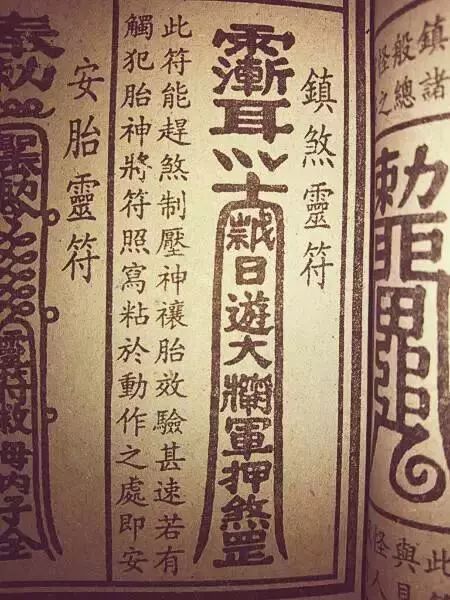 鎮諸
般總
怪之
勅
此
與見
怪人
鎮煞靈符
日遊大將軍押煞罡
此符能趕煞制壓神禳胎效驗甚速若有
觸犯胎神將符照寫粘於動作之處即安
安胎靈符
奉勅
靈符救母內子全